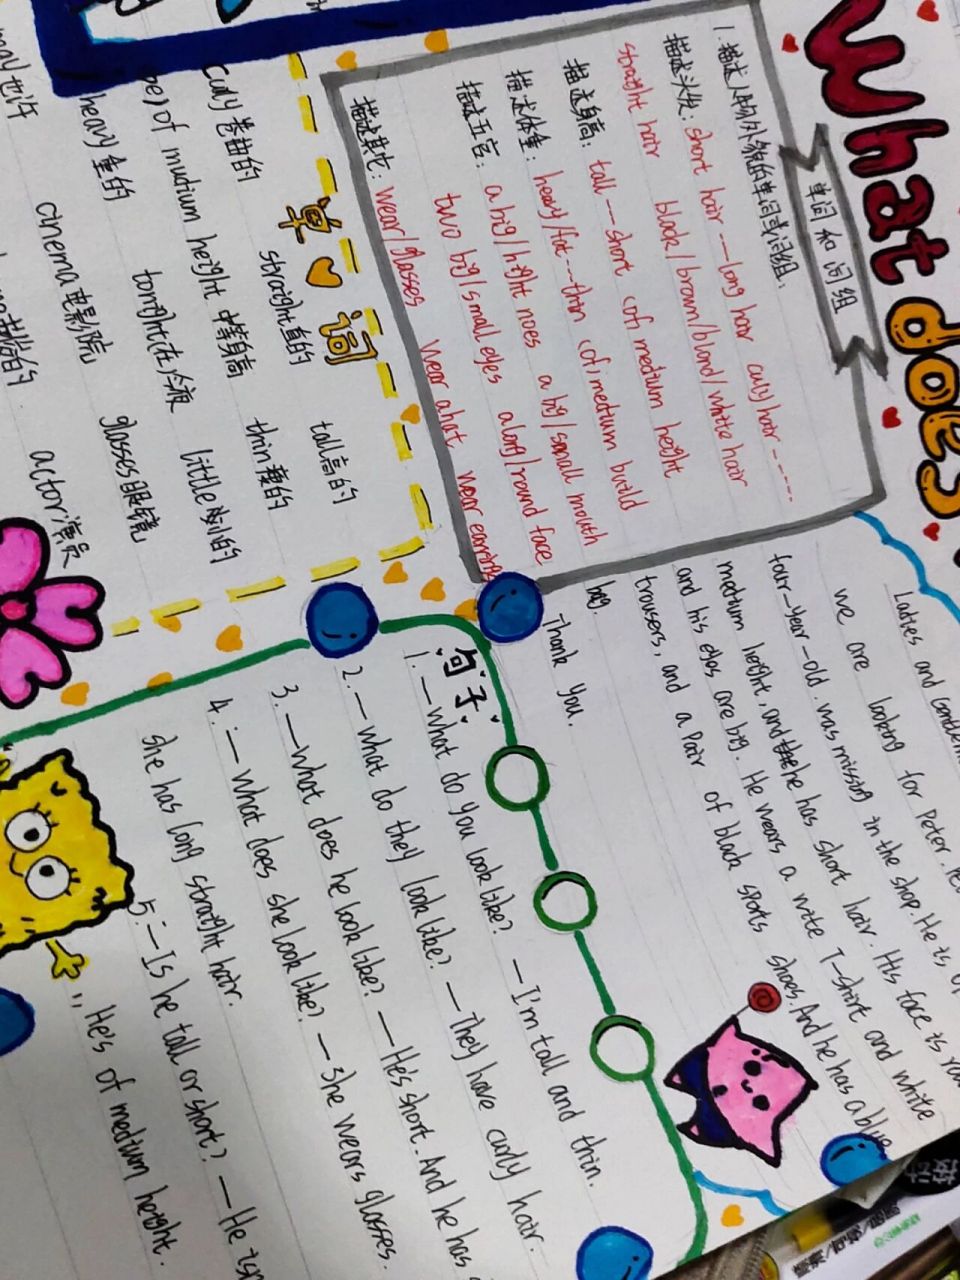 What does
单词和词组
1.描述人物外貌的单词或词组:
描述头发: short hair —— long hair culy hair -----
straight hair black/brown/blond/white hair
描述身高: tall --- short (of) medium height
描述体重: heavy/fat --- thin (of) medium build
描述五官: a big/hight noes a big/small mouth
two big/small eyes along/round face
描述其它: wear/glasses wear a hat wear earrin
单词
culy 卷曲的 straight 直的 tall 高的
of mudium height 中等身高 thin 瘦的
heavy 重的 tonight 在今夜 little 小的
may 也许 cinema 电影院 glasses 眼镜
actor 演员
Ladies and
we are looking for Peter.
four-year-old. was missing in the shop. He is
medium height, and he has short hair. His face is
and his eyes are big. He wears a wite T-shirt and white
trousers, and a pair of black sports shoes. And he has a blue
bag.
Thank you.
句子:
1. —What do you look like? —I'm tall and thin.
2. —what do they look like? —They have curly hair.
3. —what does he look like? —He's short. And he has
4. —what does she look like? —She wears glasses.
She has long straight hair.
5. —Is he tall or short? —He isn
He's of medium height.